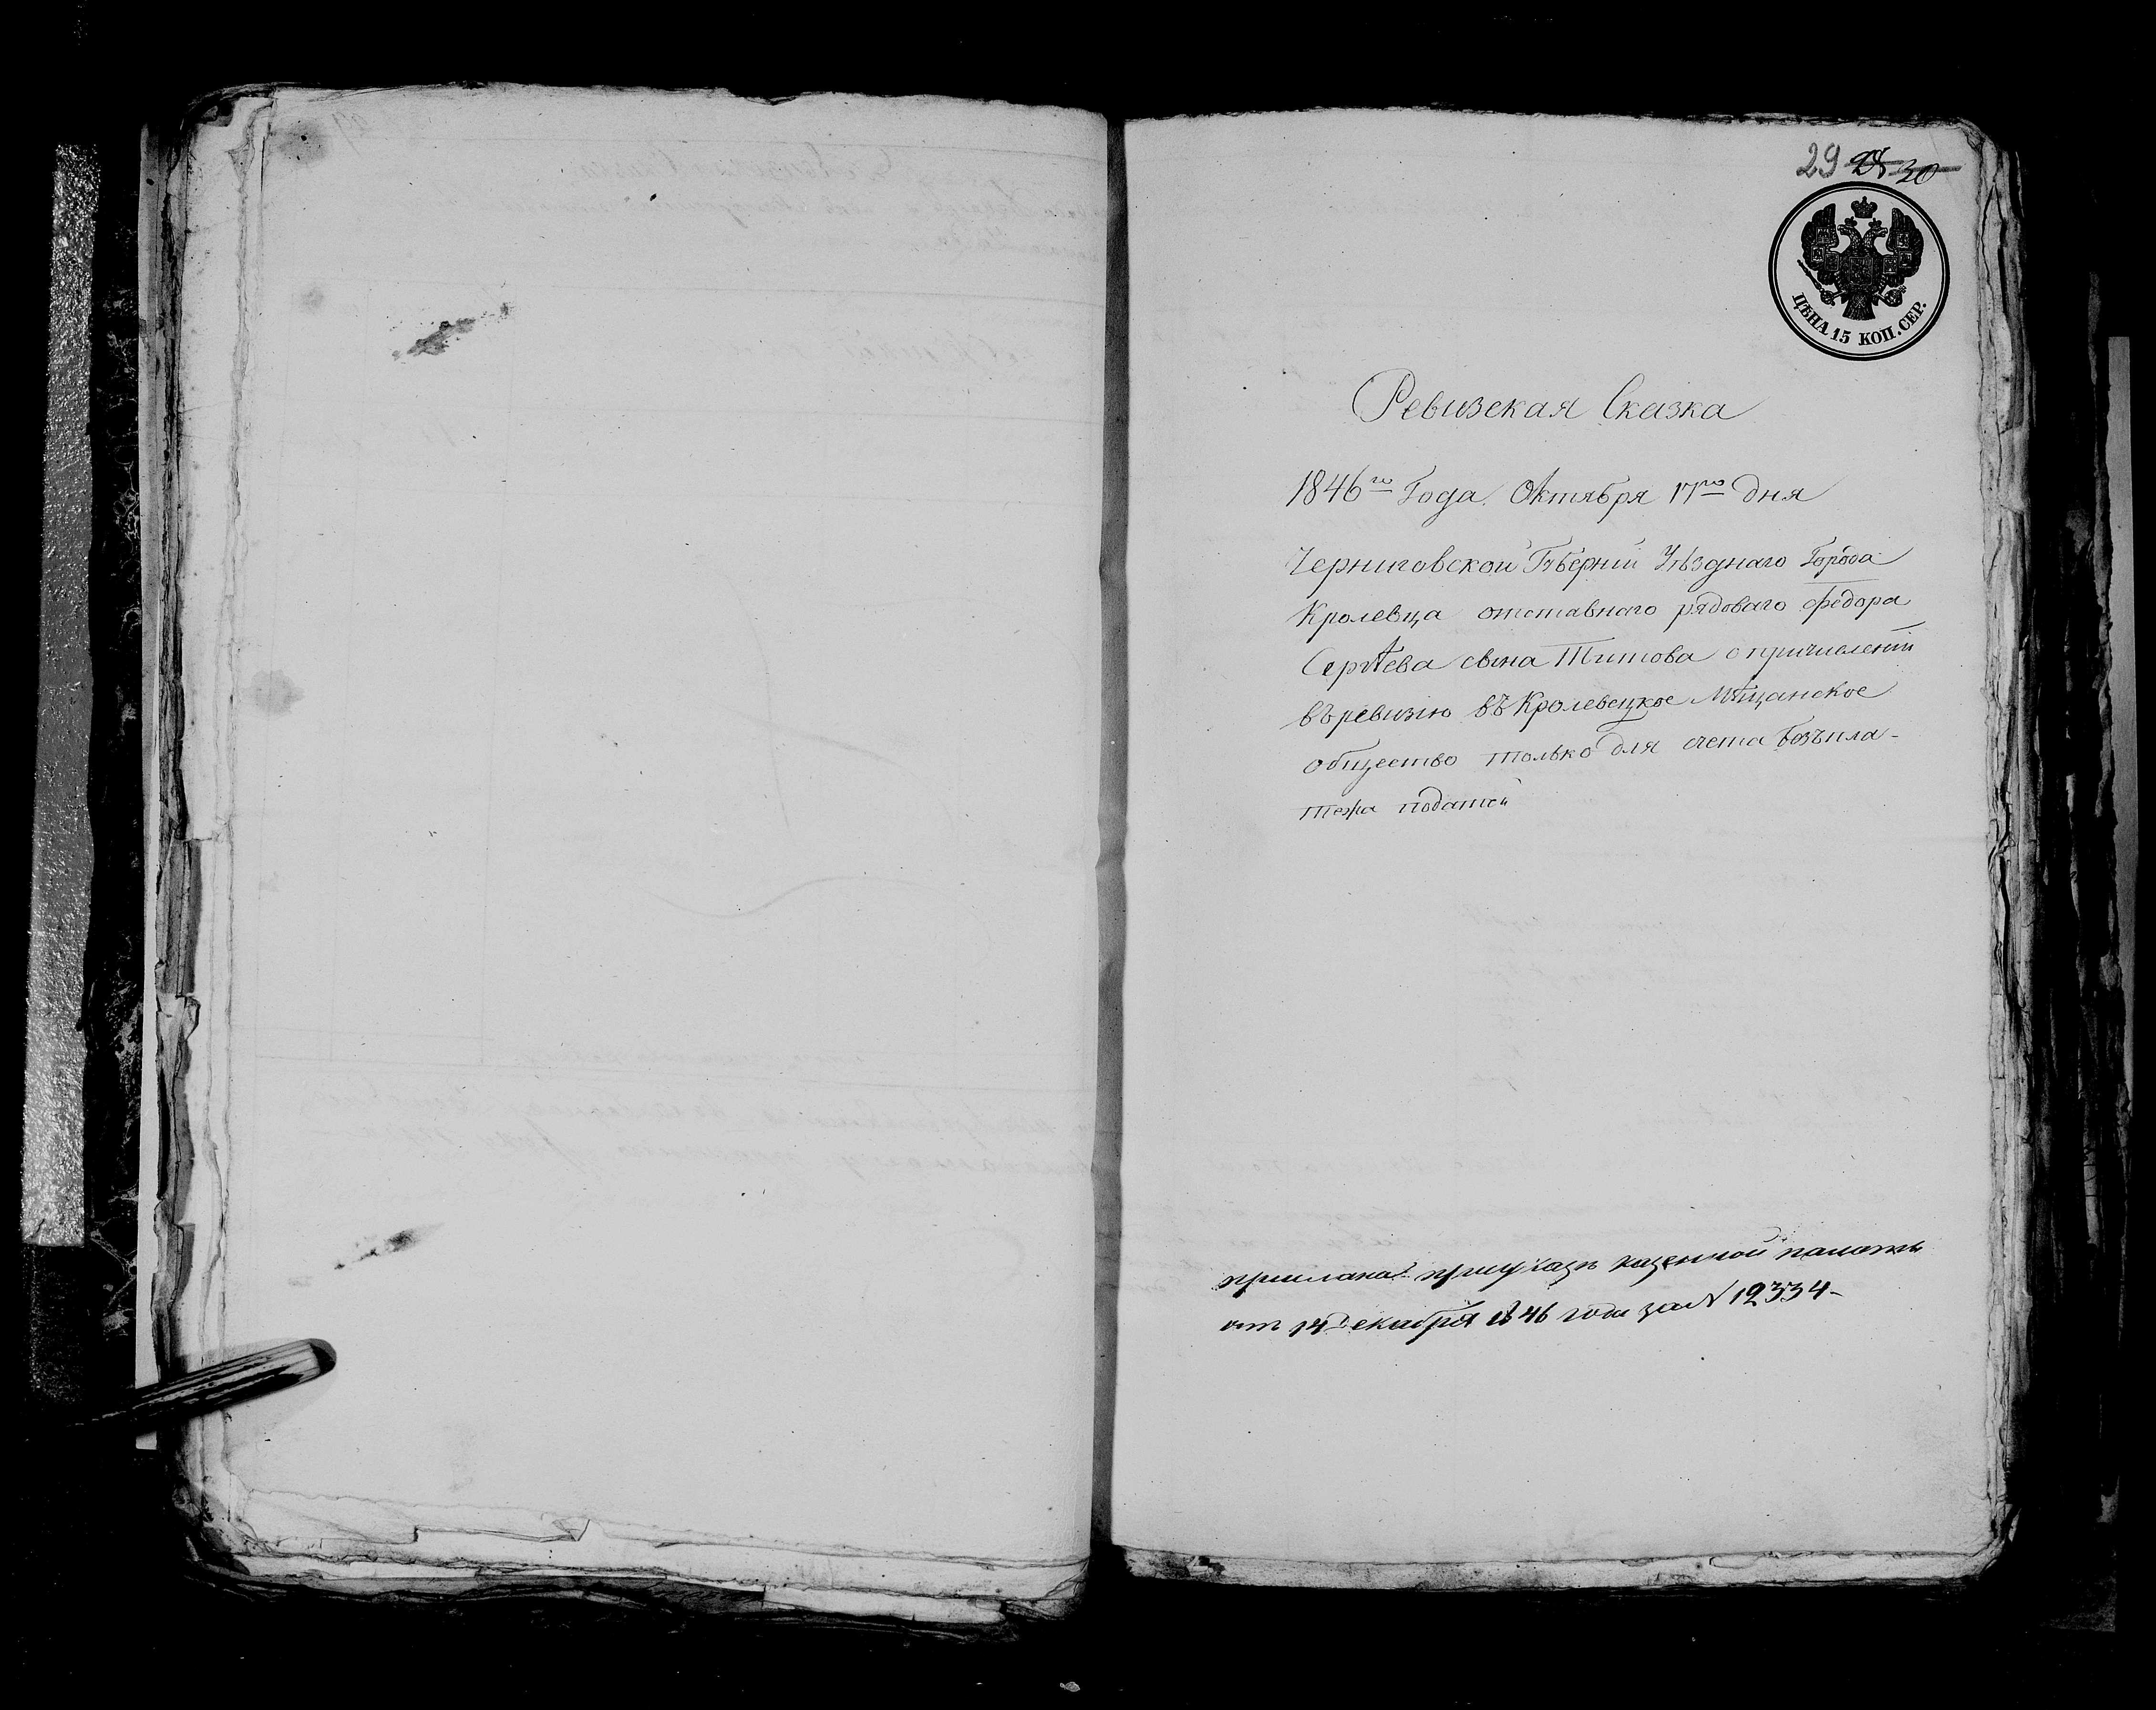 29 28 30
ЦѢНА 15 КОП. СЕР.
Ревизская Сказка
1846го Года Октября 17го дня
Черниговской Губерніи Уѣзднаго Города
Кролевца отставнаго рядоваго Федора
Сергѣева сына Титова о причисленіи
въ ревизію въ Кролевецкое Мѣщанское
общество только для счета безъ пла-
тежа податей
прислана при указѣ казенной палаты
отъ 14 Декабря 1846 года за № 12334-